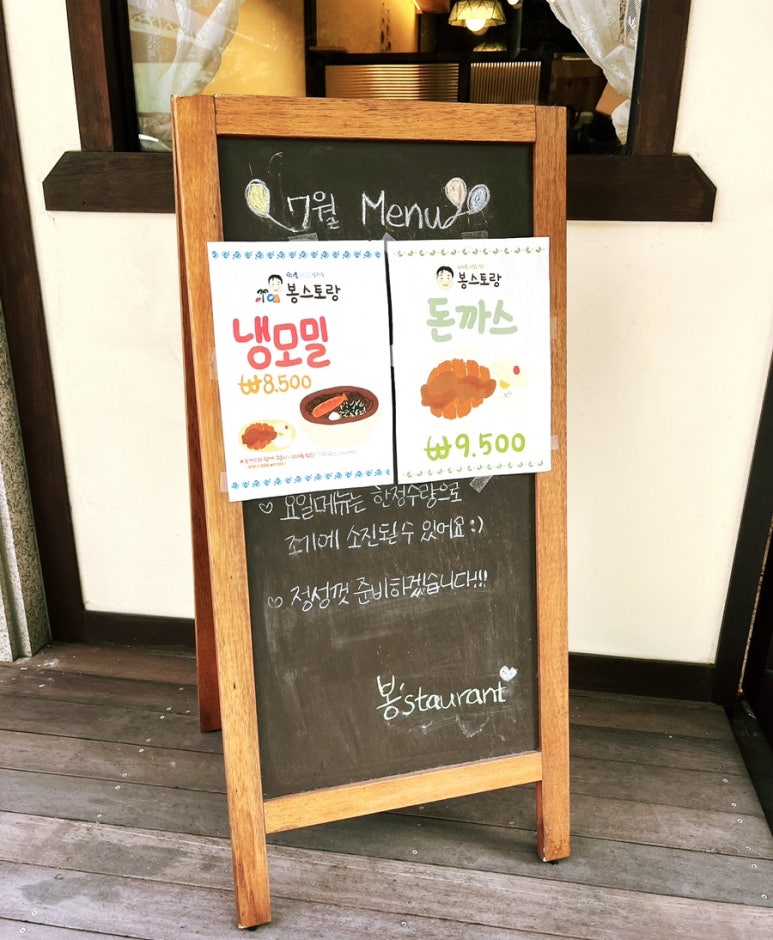 7월 Menu
봉스토랑
냉모밀
₩8.500
봉스토랑
돈까스
₩9.500
♡ 요일메뉴는 한정수량으로
조기에 소진될 수 있어요 :)
♡ 정성껏 준비하겠습니다!!!
봉'staurant